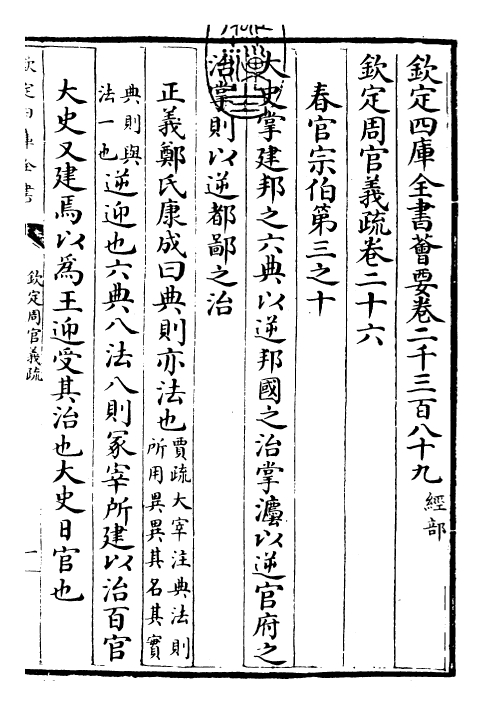 欽定四庫全書薈要卷二千三百八十九經部
欽定周官義疏卷二十六
春官宗伯第三之十
大史掌建邦之六典以逆邦國之治掌灋以逆官府之
治掌則以逆都鄙之治
正義鄭氏康成曰典則亦法也賈疏大宰注典法則
所用異異其名其實
典則與
法一也逆迎也六典八法八則冢宰所建以治百官
大史又建焉以為王迎受其治也大史日官也
欽定四庫全書
欽定周官義疏
一